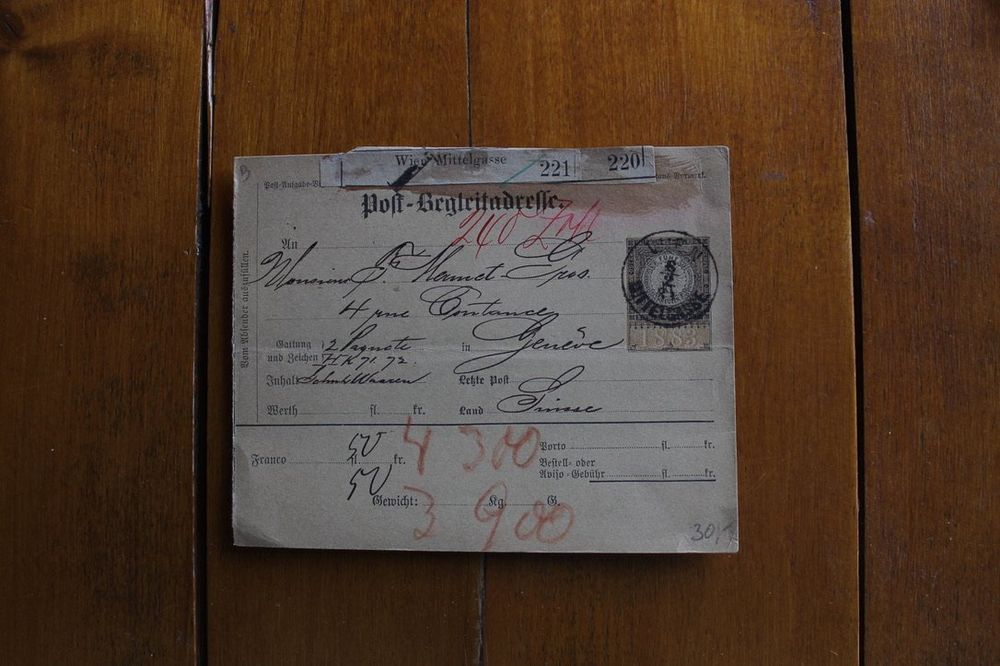 Wien Mittelgasse 221 220
Post-Begleitadresse.
240
An
Monsieur F. Mermet-Gros.
4 rue Coutance
Vom Absender auszufüllen.
in Genève
Gattung 2 Paquete
und Zeichen H.K 71. 72.
Inhalt Schuh Waaren
Letzte Post
Werth fl. kr. Land Suisse
1883
Franco 50 fl. kr.
50
4 300
Porto fl. kr.
Bestell- oder
Aviso-Gebühr fl. kr.
Gewicht: Kg. G.
3 900
30,-